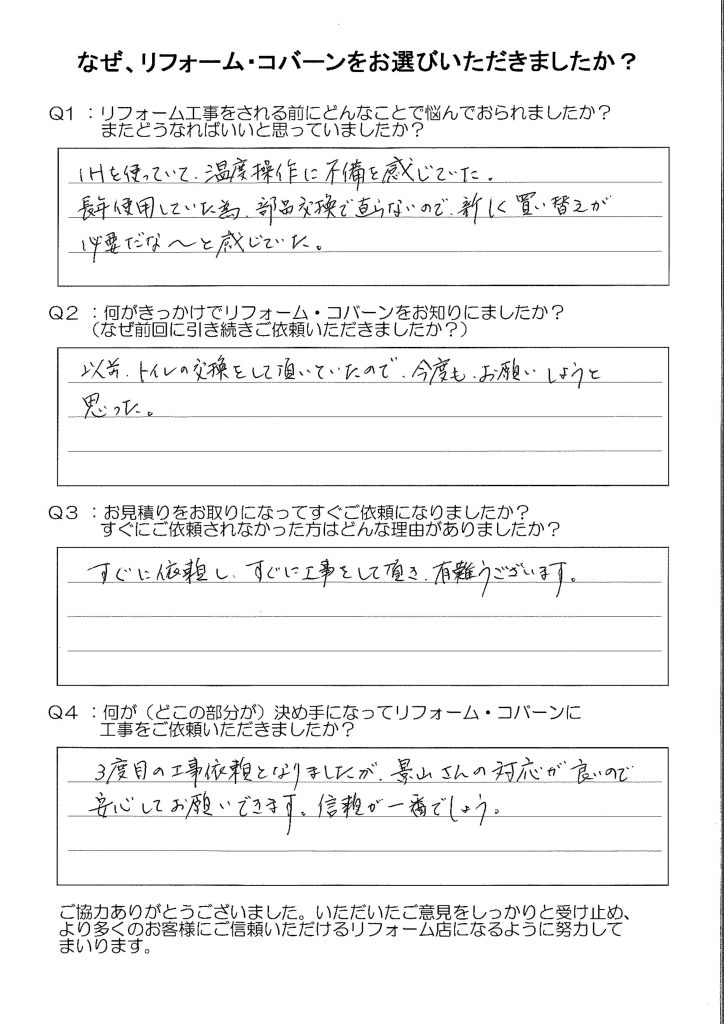 なぜ、リフォーム・コバーンをお選びいただきましたか？
Q1 ：リフォーム工事をされる前にどんなことで悩んでおられましたか？
またどうなればいいと思っていましたか？
IHを使っていて、温度操作に不備を感じていた。
長年使用していた為、部品交換で直らないので、新しく買い替えが
必要だな〜と感じていた。
Q2 ：何がきっかけでリフォーム・コバーンをお知りにましたか？
（なぜ前回に引き続きご依頼いただきましたか？）
以前、トイレの交換をして頂いていたので、今度も、お願いしようと
思った。
Q3 ：お見積りをお取りになってすぐご依頼になりましたか？
すぐにご依頼されなかった方はどんな理由がありましたか？
すぐに依頼し、すぐに工事をして頂き、有難うございます。
Q4 ：何が（どこの部分が）決め手になってリフォーム・コバーンに
工事をご依頼いただきましたか？
3度目の工事依頼となりましたが、景山さんの対応が良いので
安心してお願いできます。信頼が一番でしょう。
ご協力ありがとうございました。いただいたご意見をしっかりと受け止め、
より多くのお客様にご信頼いただけるリフォーム店になるように努力して
まいります。